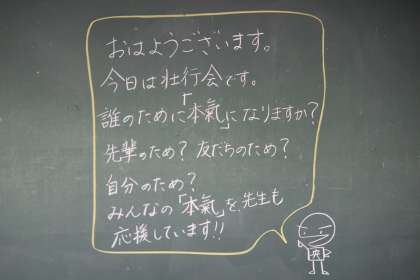 おはようございます。
今日は壮行会です。
誰のために「本氣」になりますか?
先輩のため? 友だちのため?
自分のため?
みんなの「本氣」を先生も
応援しています!!